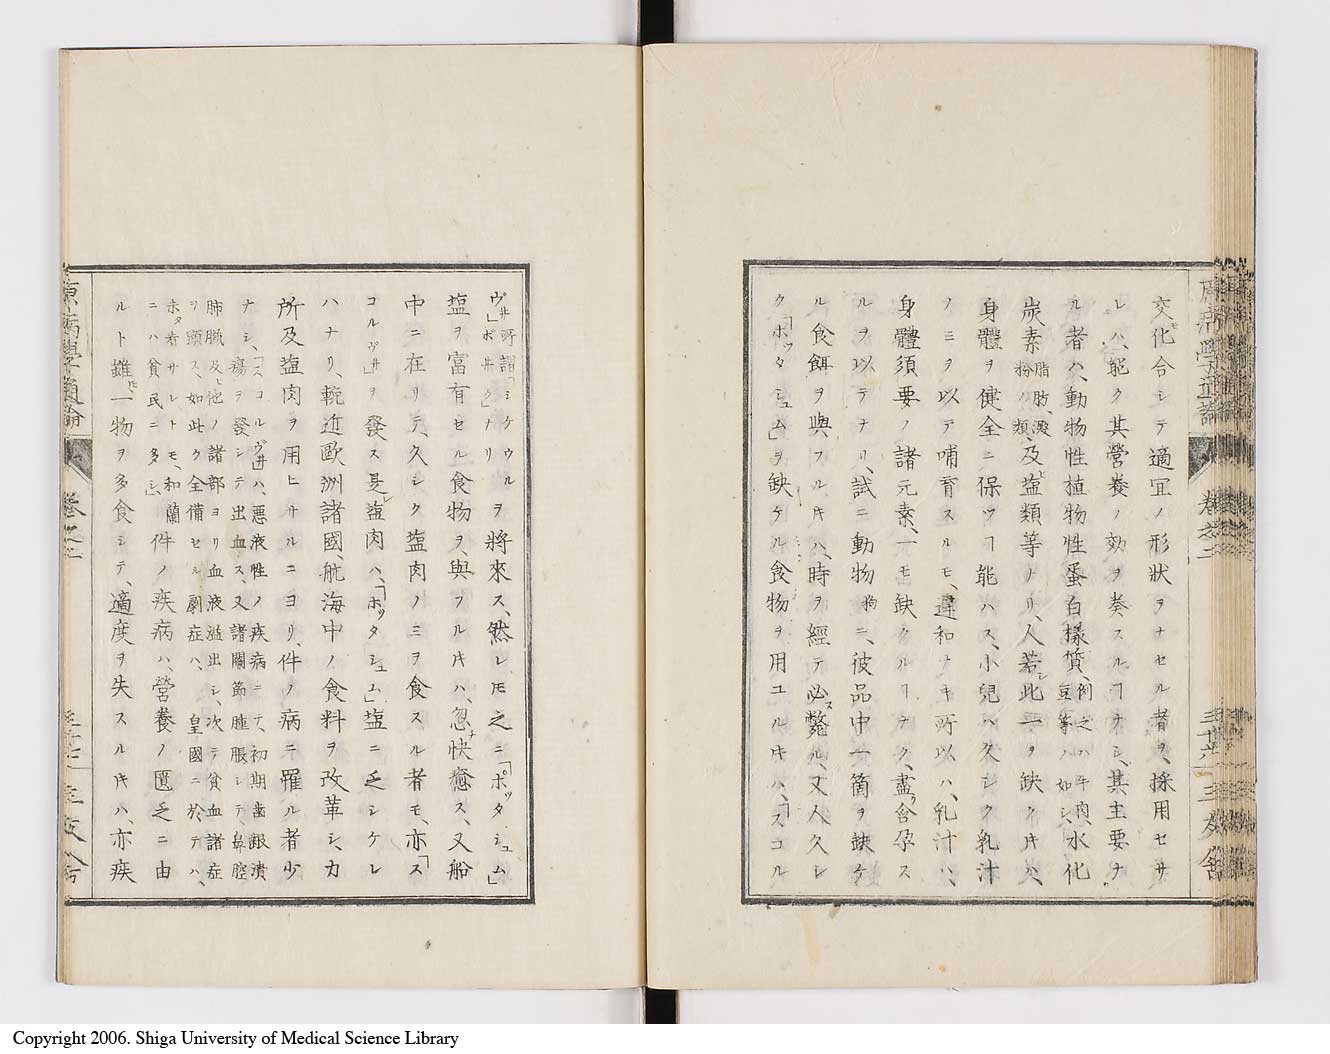 交化合シテ適冝ノ形狀ヲナセル者ヲ、採用セサ
レハ、能ク其營養ノ効ヲ奏スルヿナシ、其主要ナ
ル者ハ、動物性植物性蛋白樣質、例之ハ牛肉、豆等ノ如シ、水化
炭素脂肪、澱粉ノ類、及ヒ塩類等ナリ、人若シ此一ヲ缺クキハ、
身體ヲ健全ニ保ツヿ能ハス、小兒ハ久シク乳汁
ノミヲ以テ哺育スルモ、違和ナキ所以ハ、乳汁ハ、
身體須要ノ諸元素、一モ缺クルヿナク、盡ク含孕ス
ルヲ以テナリ、試ニ動物狗ニ、彼品中一箇ヲ缺ケ
ル食餌ヲ與フルキハ、時ヲ經テ必ス斃ル、又人久シ
ク「ポッタシュム」ヲ缺ケル食物ヲ用ユルキハ、「スコル
ヴ井」所謂「ミケウルボ井ク」ナリヲ將來ス、然レ𪜈之ニ「ポッタシュム」
塩ヲ富有セル食物ヲ、與フルキハ、忽ナ快癒ス、又船
中ニ在リテ、久シク塩肉ノミヲ食スル者モ、亦「ス
コルヴ井」ヲ發ス是レ塩肉ハ、「ポッタシュム」塩ニ乏シケレ
ハナリ、輓近歐洲諸國、航海中ノ食料ヲ改革シ、力
所及塩肉ヲ用ヒサルニヨリ、件ノ病ニ罹ル者少
ナシ、「スコルヴ井」ハ、悪液性ノ疾病ニテ、初期齒齦潰
瘍ヲ發シテ出血ス、又諸關節腫脹シテ、鼻腔
肺臓及ヒ他ノ諸部ヨリ血液溢出シ、次テ貧血諸症
ヲ顕ス、如此ク全備セル劇症ハ、皇國ニ於テハ、
未タ看サレトモ、和蘭
ニハ貧民ニ多シ、件ノ疾病ハ、營養ノ匱乏ニ由
ルト雖𪜈、一物ヲ多食シテ、適度ヲ失スルキハ、亦疾
原病學通論
卷之二
三友舍
原病學通論
卷之二
三十六
三友舍
Copyright 2006. Shiga University of Medical Science Library